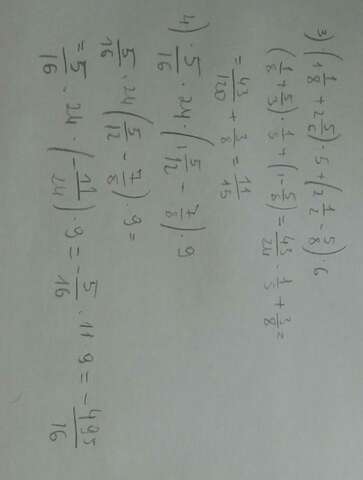 3) (1 1/8 + 2 5/6) · 5 + (2 1/2 - 5/8) · 6
(1/8 + 5/3) · 1/5 + (1 - 5/8) = 43/24 · 1/5 + 3/8 =
= 43/120 + 3/8 = 11/15
4) · 5/16 · 24 · (1 5/12 - 7/8) · 9
5/16 · 24 (5/12 - 7/8) · 9 =
= 5/16 · 24 · (- 11/24) · 9 = - 5/16 · 11 · 9 = - 495/16